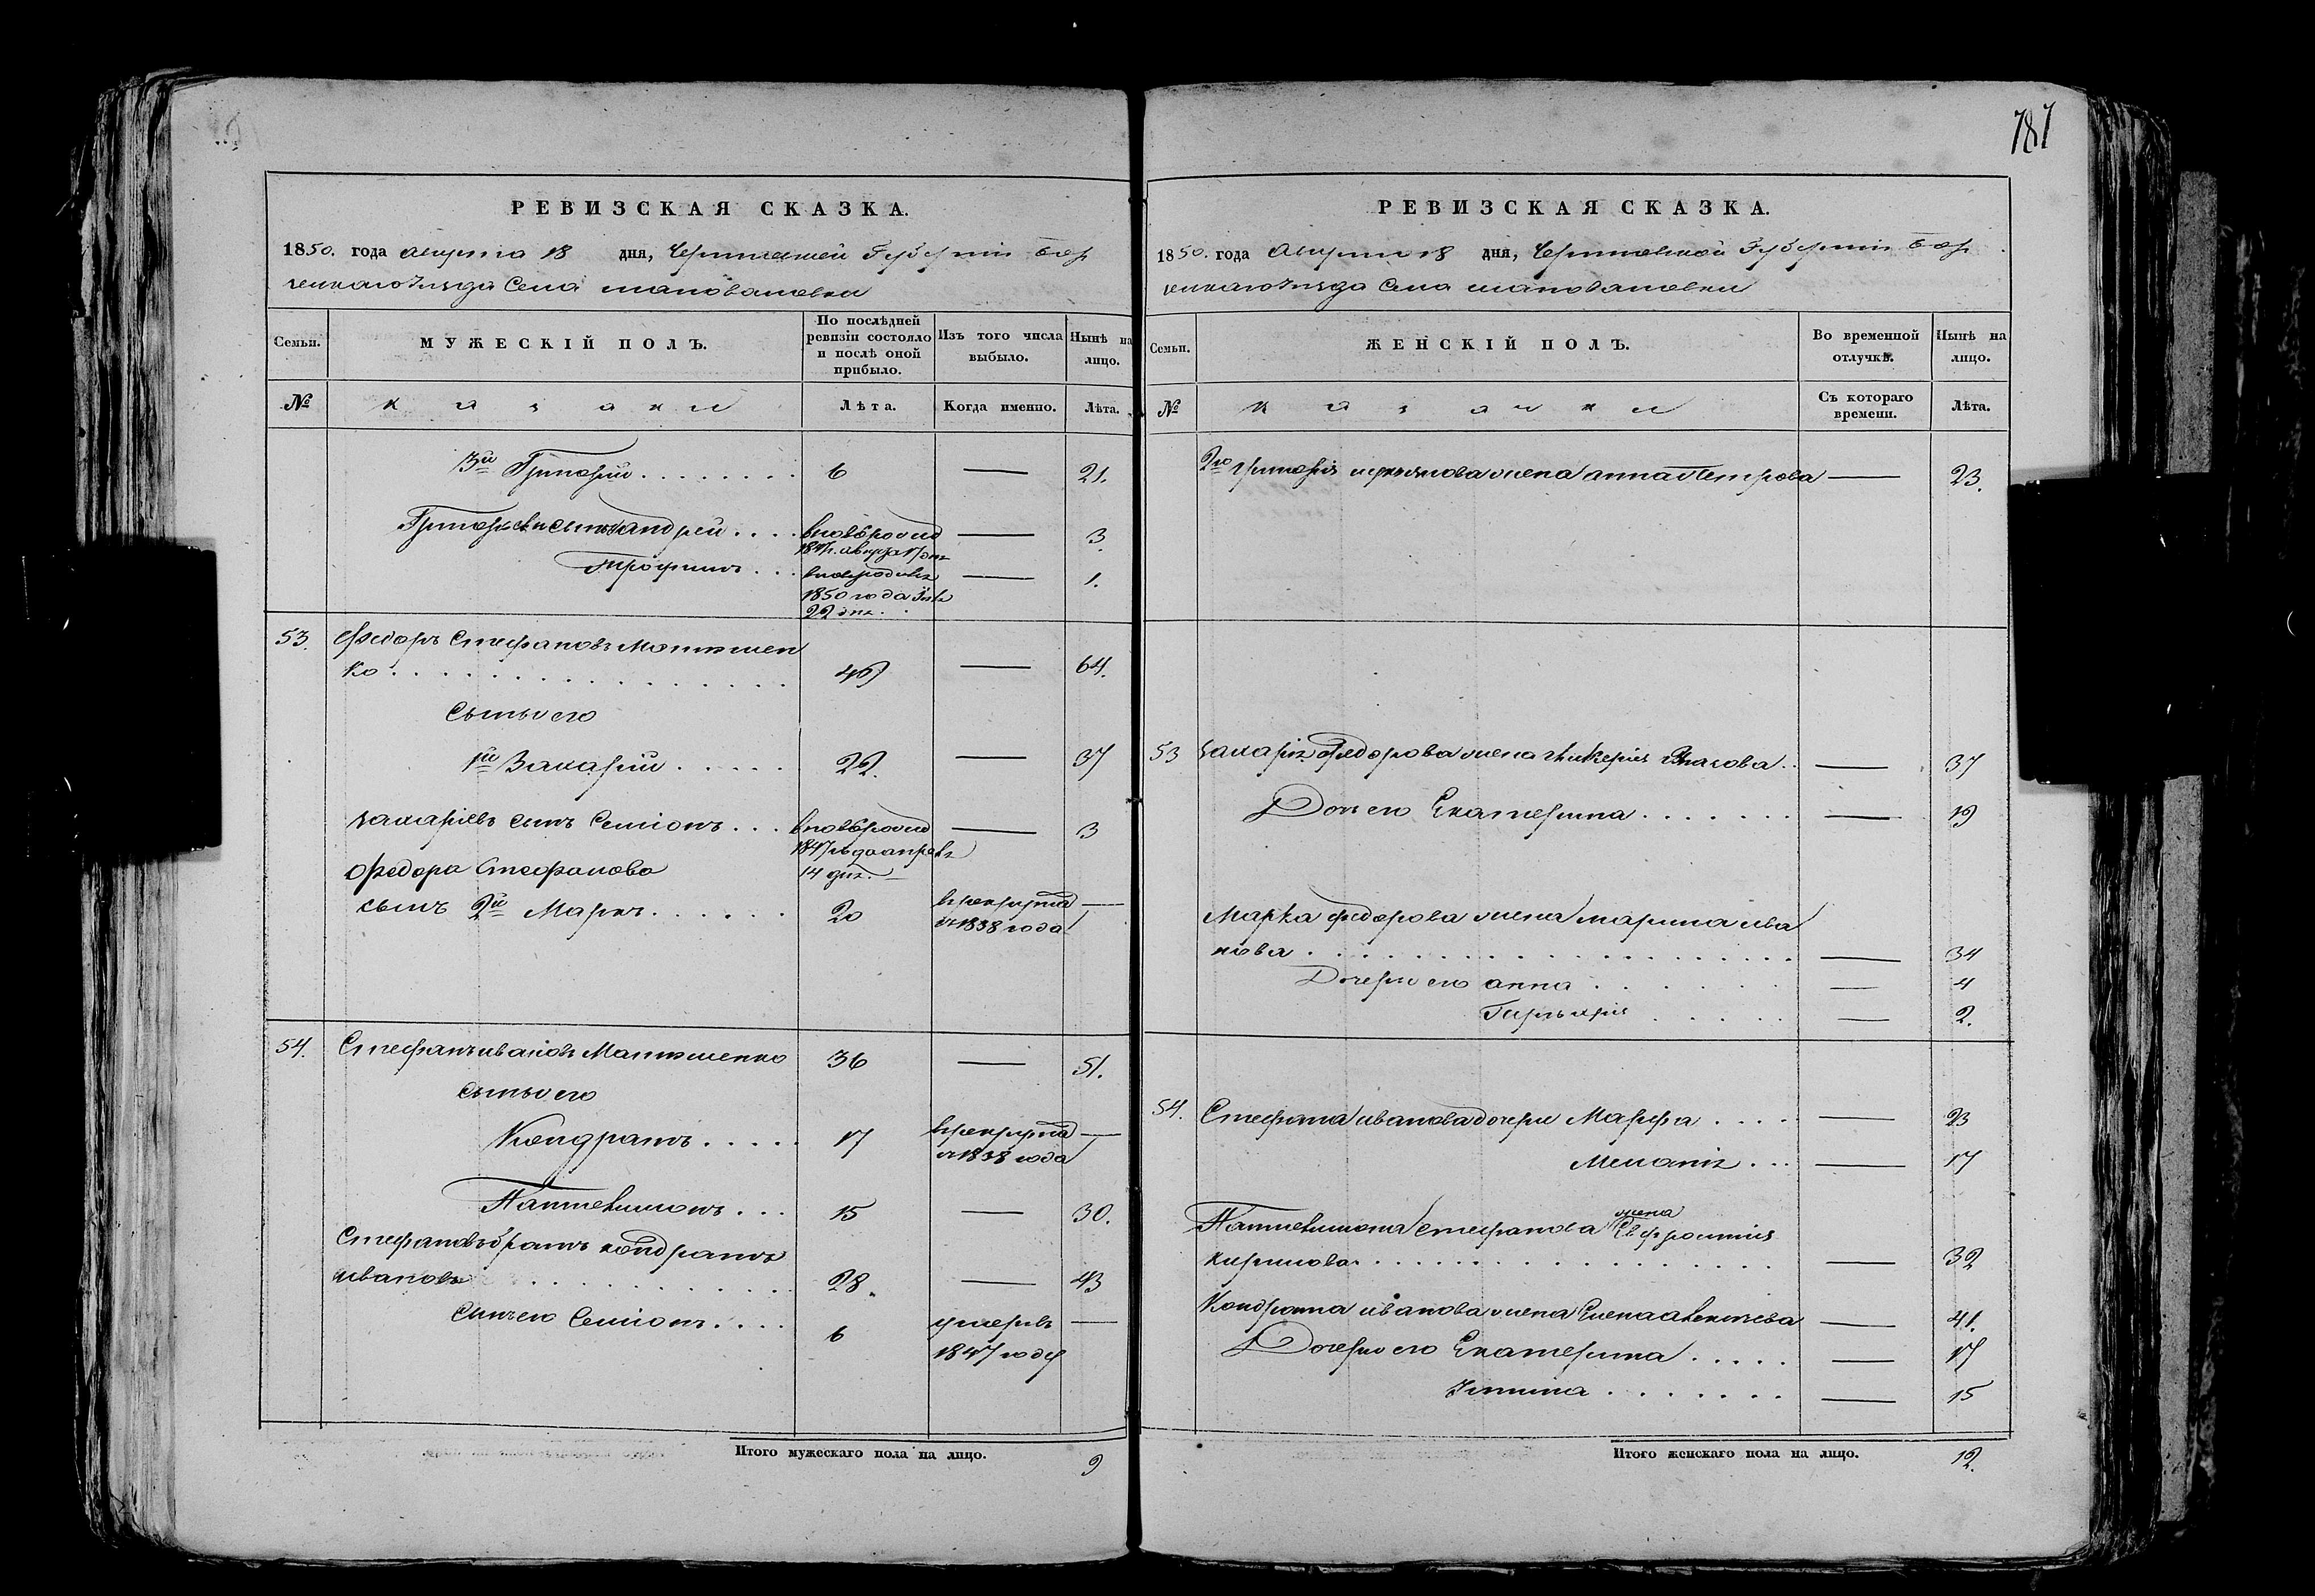 787
РЕВИЗСКАЯ СКАЗКА.
1850. года Августа 18 дня, Черниговской Губернии Бор
зенскаго Уезда Села Шаповаловки
Семьи.
МУЖЕСКІЙ ПОЛЪ.
По послѣдней ревизіи состояло и послѣ оной прибыло.
Изъ того числа выбыло.
Нынѣ на лицо.
№
казаки
Лѣта.
Когда именно.
Лѣта.
3й Григорій 6 — 21.
Григорьевы сыновья Андрей вновьрожд — 3
1847г.
Трофимъ — 1.
1850 года
22 дня.
53. Федоръ Стефановъ Матюшен
ко 49 — 64.
Сыны его
1й Захарій 22. — 37
Захаріевъ сынъ Семіонъ вновьрожд — 3
1847
14 дня.
Федора Стефанова
сынъ 2й Марко 20 в рекрутах —
с 1838 года
54. Стефанъ Ивановъ Матюшенко 36 — 51.
Сыны его
Кондратъ 17 в рекрутах —
с 1838 года
Пантелимонъ 15 — 30.
Стефановъ братъ Кондратъ
Ивановъ 28. — 43
Сынъ его Семіонъ 6 умеръ —
1847 году
Итого мужескаго пола на лицо. 9
РЕВИЗСКАЯ СКАЗКА.
1850. года Августа 18 дня, Черниговской Губернии Бор
зенскаго Уезда Села Шаповаловки
Семьи.
ЖЕНСКІЙ ПОЛЪ.
Во временной отлучкѣ.
Нынѣ на лицо.
№
казачки
Съ котораго времени.
Лѣта.
Григорія жена Анна Петрова — 23.
53 Захарія Федорова жена Гликерія — 37
Дочь его Екатерина — 19
Марка Федорова жена Марина Ива
нова — 34
Дочери его Анна — 4
Гликерія — 2.
54. Стефана Иванова дочери Марфа — 23
Меланія — 17
Пантелимона Стефанова жена Евфросинія
Кирилова — 32
Кондрата Иванова жена Елена — 41.
Дочери его Екатерина — 17
— 15
Итого женскаго пола на лицо. 12.